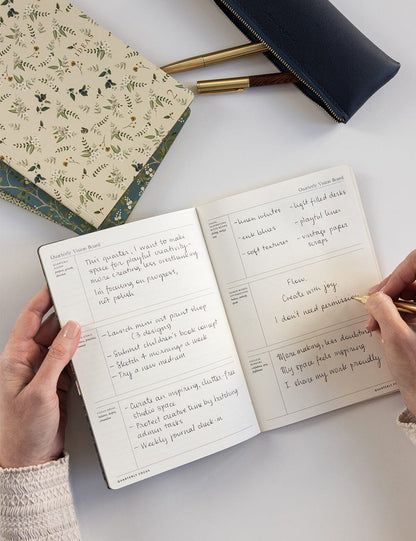 Quarterly Vision Board
This quarter, I want to make
space for playful creativity-
more creating, less overthinking
I'm focusing on progress,
not polish
- Launch mini art print shop
(3 designs)
- Submit children's book concept
- Sketch 4 mornings a week
- Try a new medium
- Curate an inspiring, clutter free
studio space
- Protect creative time by batching
admin tasks
- Weekly journal check-in
QUARTERLY FOCUS
Quarterly Vision Board
- linen whites
- ink blues
- soft textures
- light filled desks
- playful lines
- vintage paper
scraps
Flow.
Create with joy.
I don't need permission
More making, less doubting
My space feels inspiring
I share my work proudly
QUARTERLY FOCUS